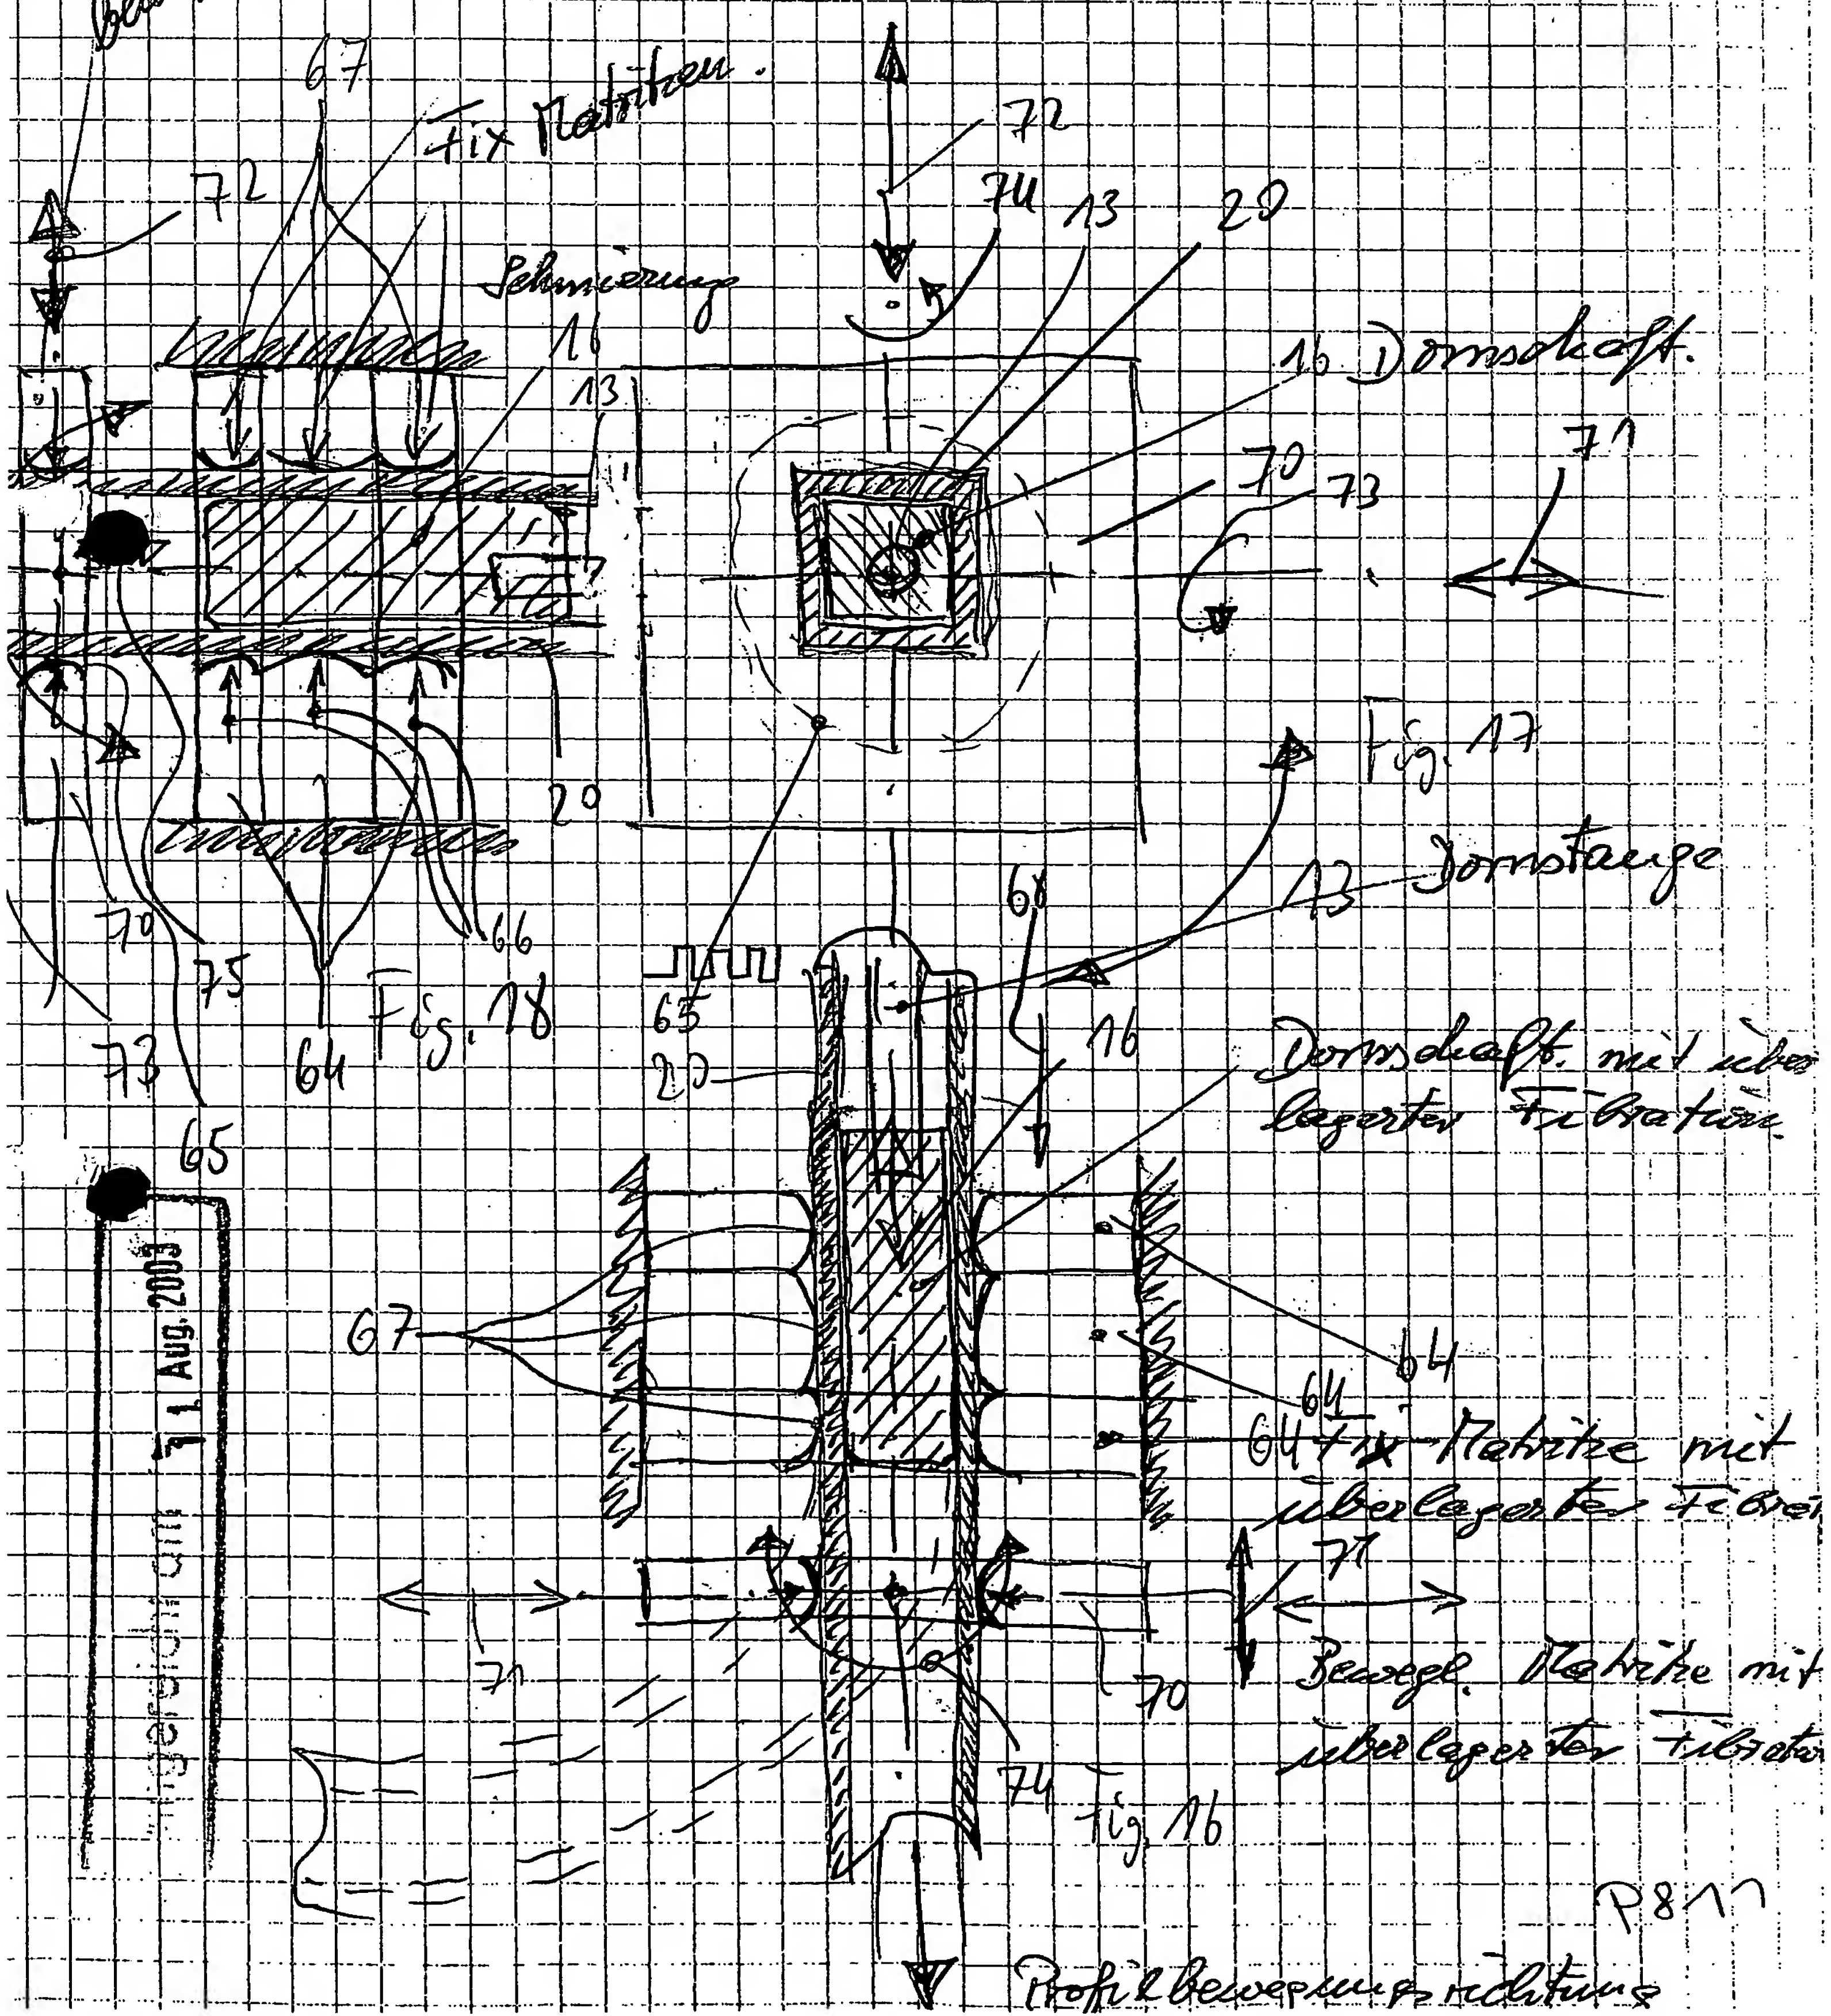 67
Fix Matritzen.
72
72
74 13 20
Schmierung
16
13
16 Dornschaft.
71
70
73
Fig. 17
20
Dornstange
13
68
70
66
75
Fig. 18
65
20
16
73
64
Dornschaft. mit über
lagerter Fibration.
65
11. Aug. 2003
67
64
64
64 Fix Matritze mit
überlagerter Fibrat
71
Bewegl. Matritze mit
überlagerter Fibration
71
70
74
Fig. 16
P811
Profilbewegungsrichtung